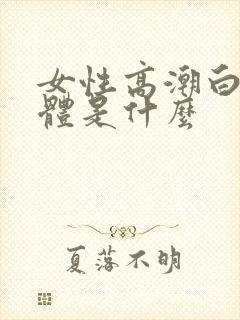 女性高潮白
體是什麼
夏落不明